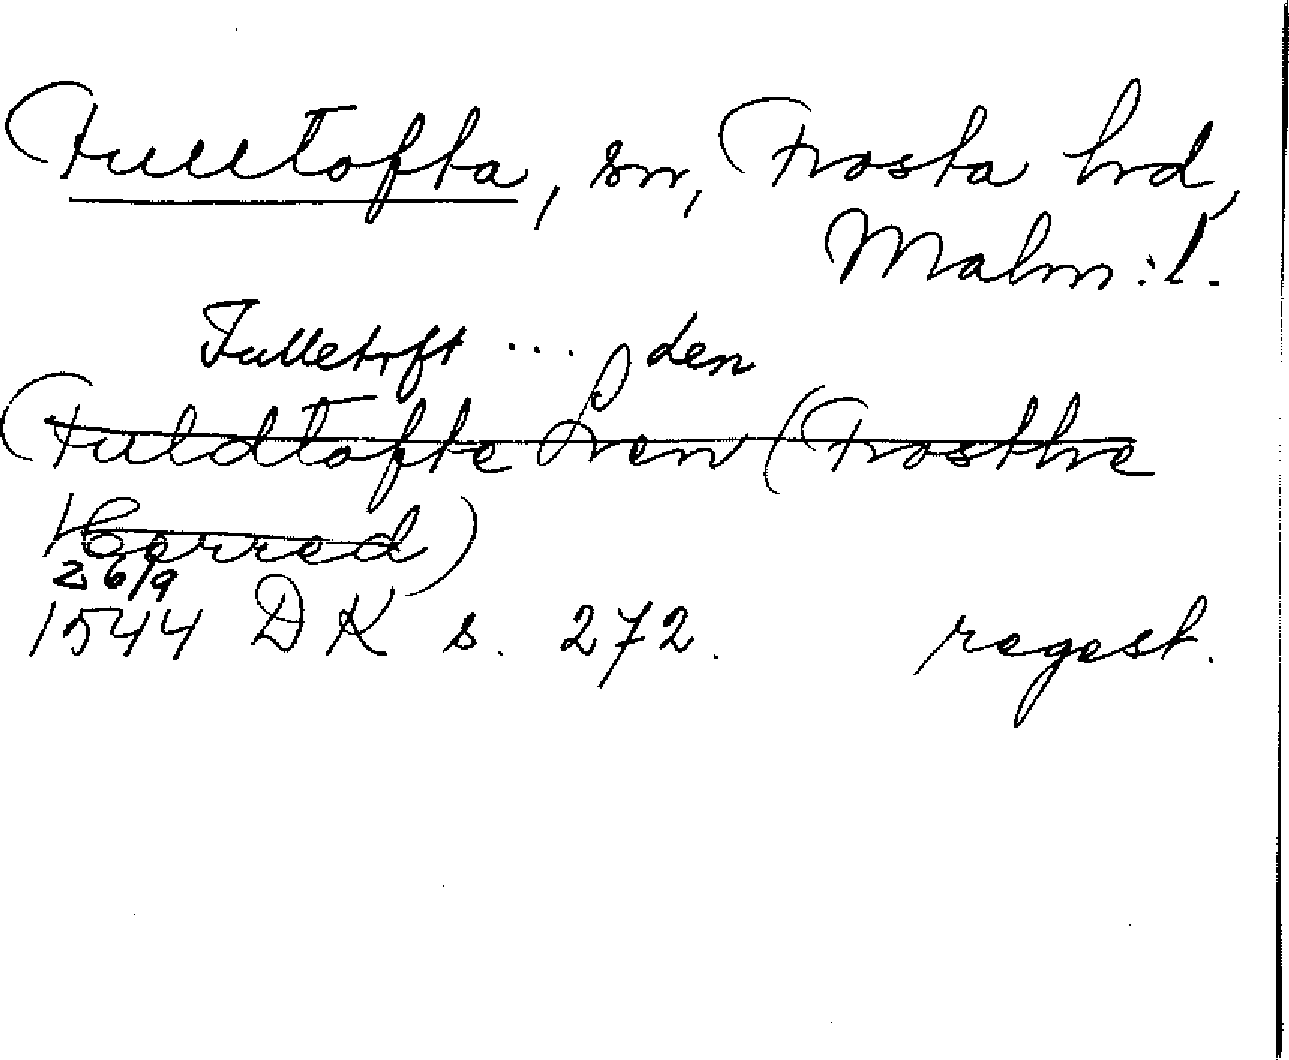 Fulltofta, sn, Frosta hd,
Malm:l.
Fulletoft ... den
Fuldtofte Len (Frosthe
Herred)
26/9
1544 DK s. 272. regest.